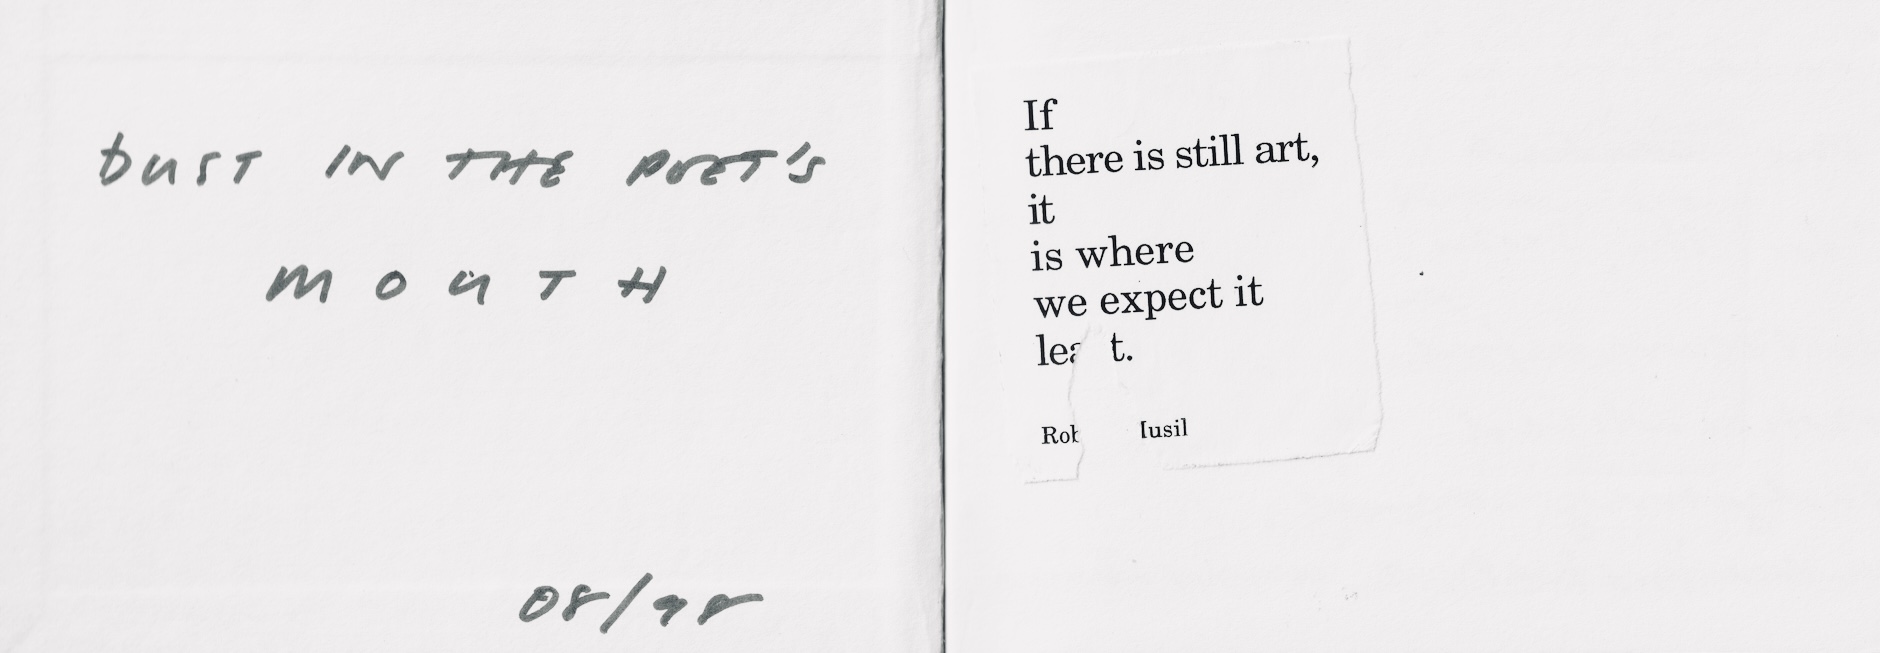 DUST IN THE POET'S
MOUTH
08/98
If
there is still art,
it
is where
we expect it
lea t.
Rob Musil